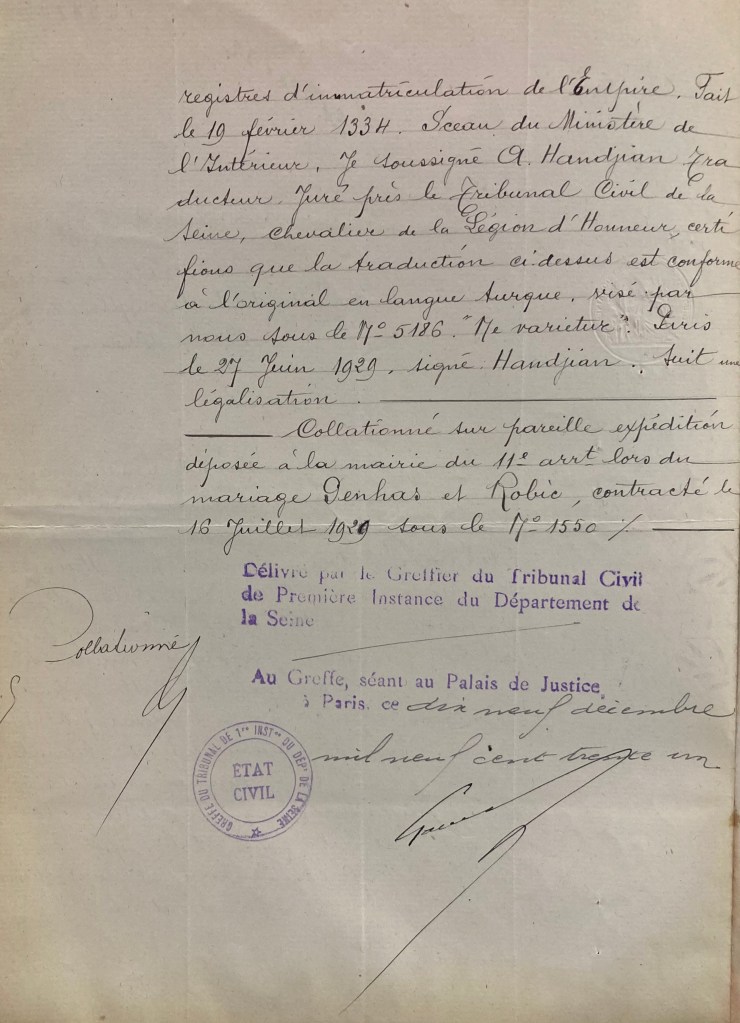 registres d'immatriculation de l'Empire. Fait
le 19 février 1334. Sceau du Ministère de
l'Intérieur. Je soussigné A. Handjian Tra
ducteur Juré près le Tribunal Civil de la
Seine, chevalier de la Légion d'Honneur, certi
fions que la traduction ci-dessus est conforme
à l'original en langue turque, visé par
nous sous le No 5186. "Ne varietur". Paris
le 27 Juin 1929, signé Handjian. Suit une
légalisation.
Collationné sur pareille expédition
déposée à la mairie du 11e arrt lors du
mariage Denhas et Robic, contracté le
16 Juillet 1929 sous le No 1550 ./.
Délivré par le Greffier du Tribunal Civil
de Première Instance du Département de
la Seine
Collationné
Au Greffe, séant au Palais de Justice
à Paris, ce dix neuf décembre
mil neuf cent trente un
GREFFE DU TRIBUNAL DE 1re INSTce DU DÉPt DE LA SEINE
ÉTAT
CIVIL